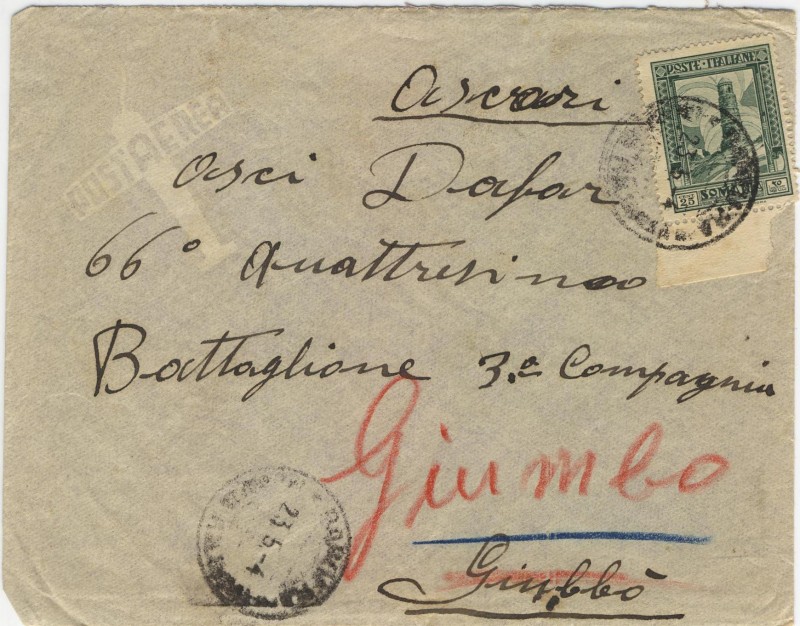 POSTE ITALIANE
25
SOMALIA
POSTA AEREA
Ascari
Asci Dafar
66° Quattresimo
Battaglione 3.a Compagnia
Giumbo
Giubbò
23.5-4